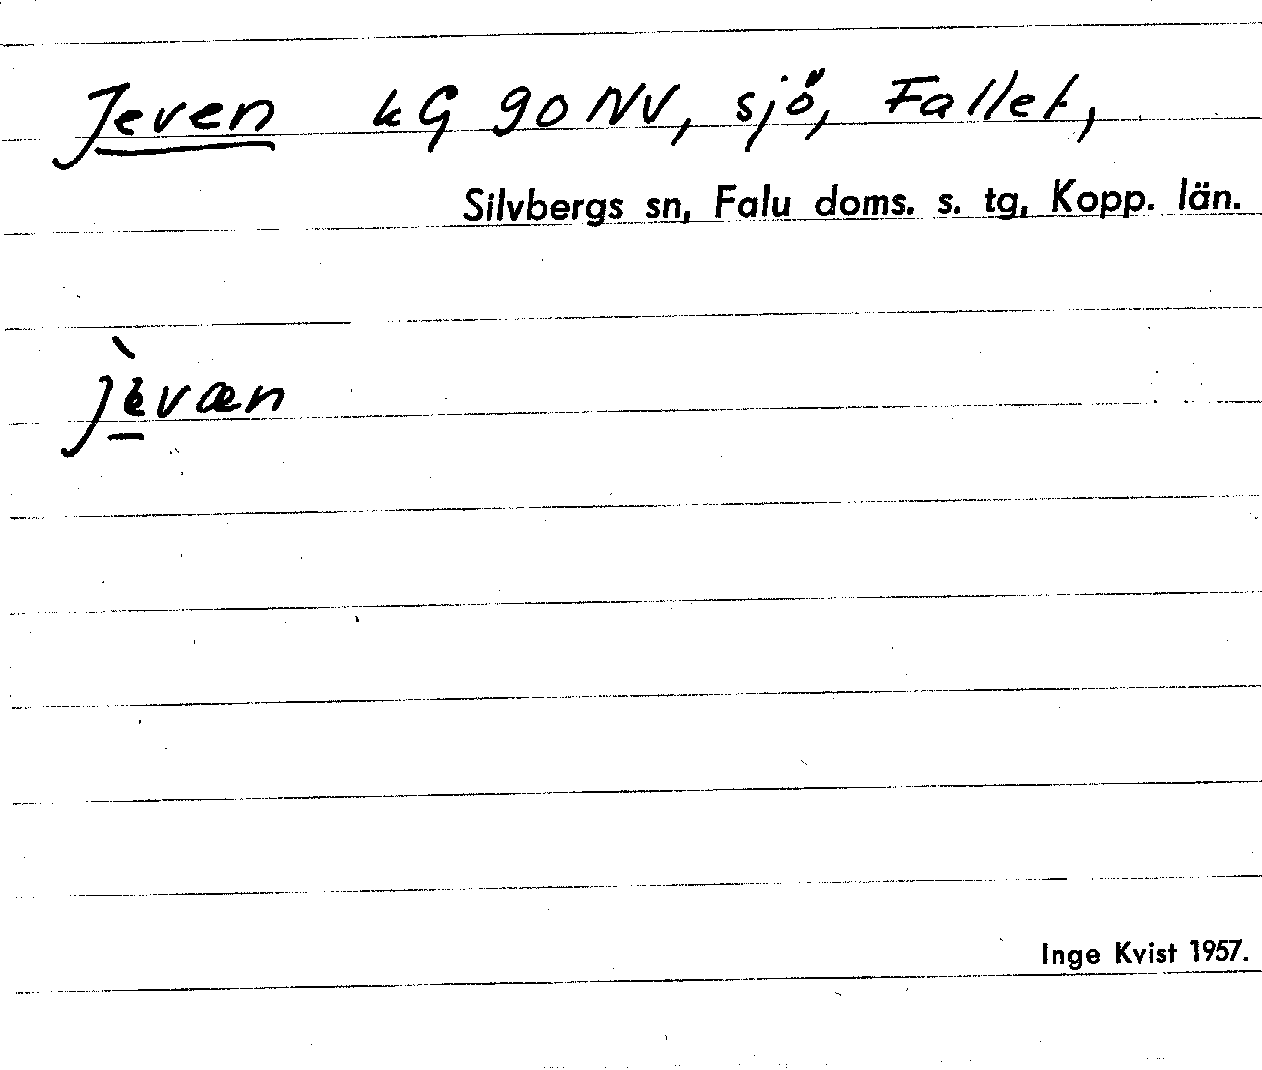 Jeven kG 90 NV, sjö, Fallet,
Silvbergs sn, Falu doms. s. tg, Kopp. län.
jè̱væn
Inge Kvist 1957.